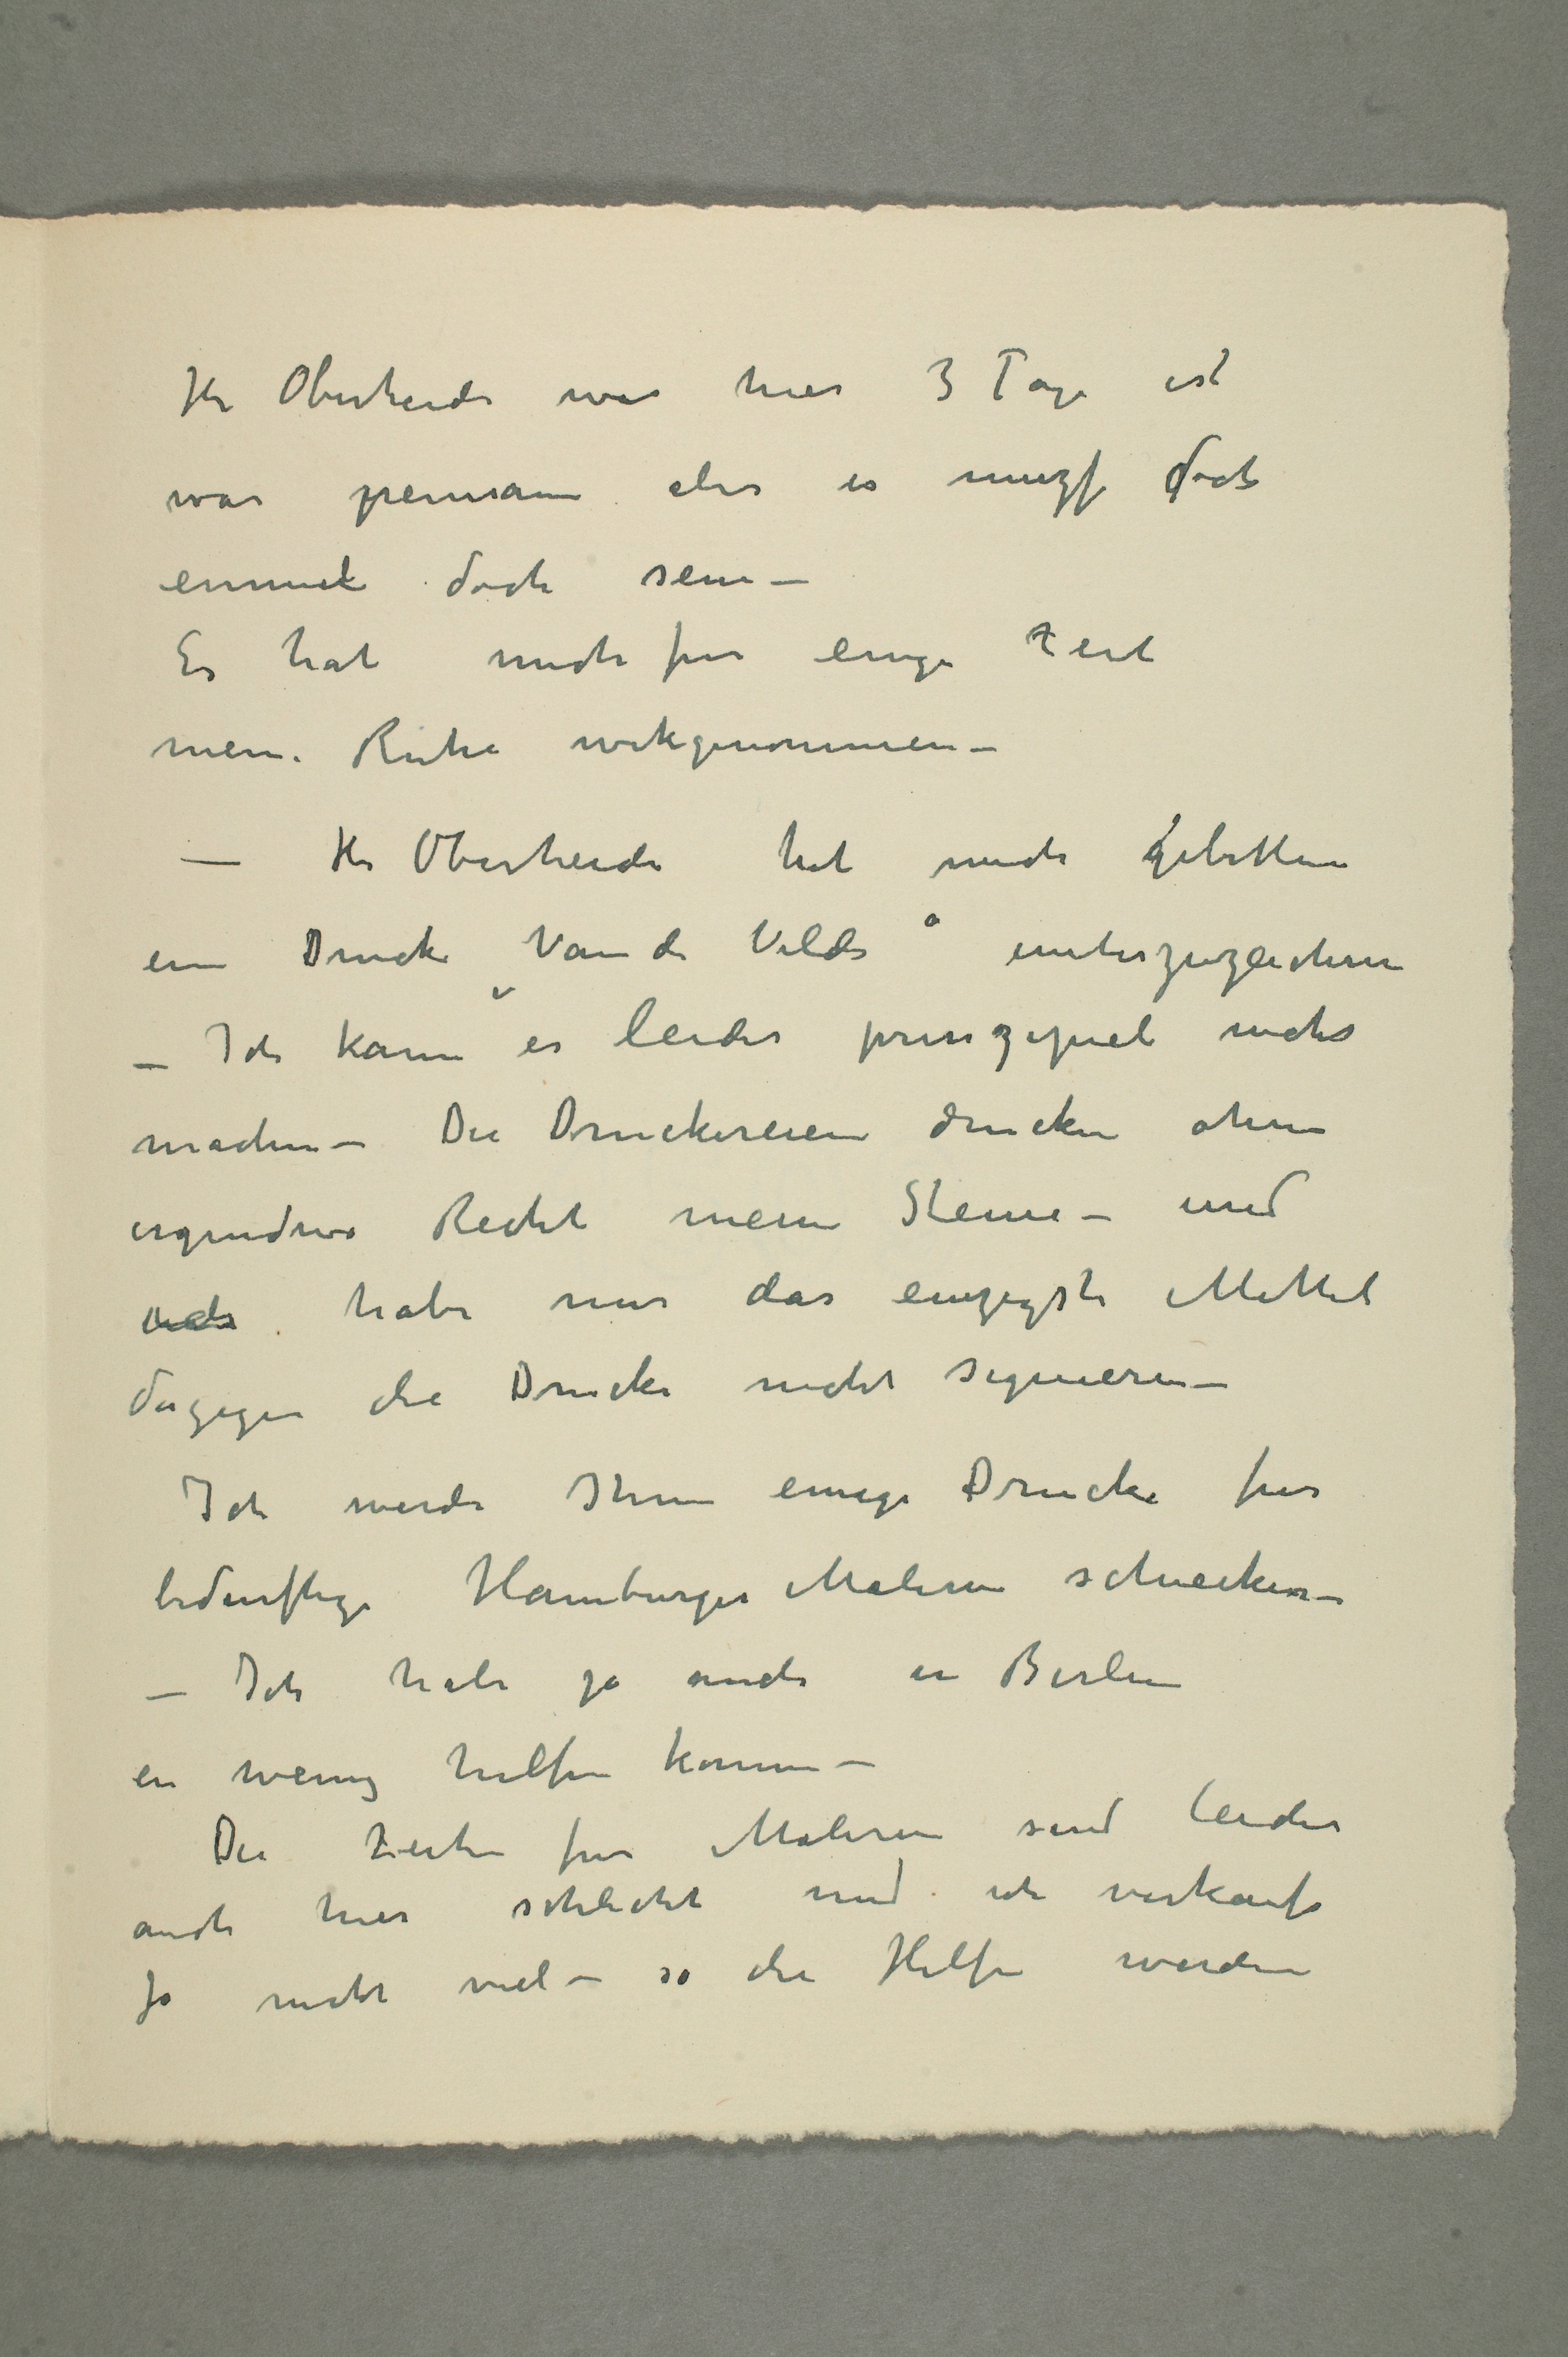 Hr Oberheide war hier 3 Tage est
war peinsam aber es muzs doch
einmal doch sein –
Es hat mich fur einige Zeit
meine Ruhe wekgenommen –
– Hr Oberheide hat mich gebitten
ein Druck Van de Velde unterzuzeichnen
– Ich kann es leider prinzipiel nicht
machen – Die Druckereien drucken ohne
irgendwo Recht meine Steine – und
ich habe nur das einzigste Mittel
dagegen die Drucke nicht signieren –
Ich werde Ihnen einige Drucke fur
bedurftige Hamburger Maleren schicken –
– Ich habe ja auch in Berlin
ein wenig helfen konnen –
Die Zeiten fur Maleren sind leider
auch hier schlecht und ich verkaufe
ja nicht viel – so die Hilfen werden